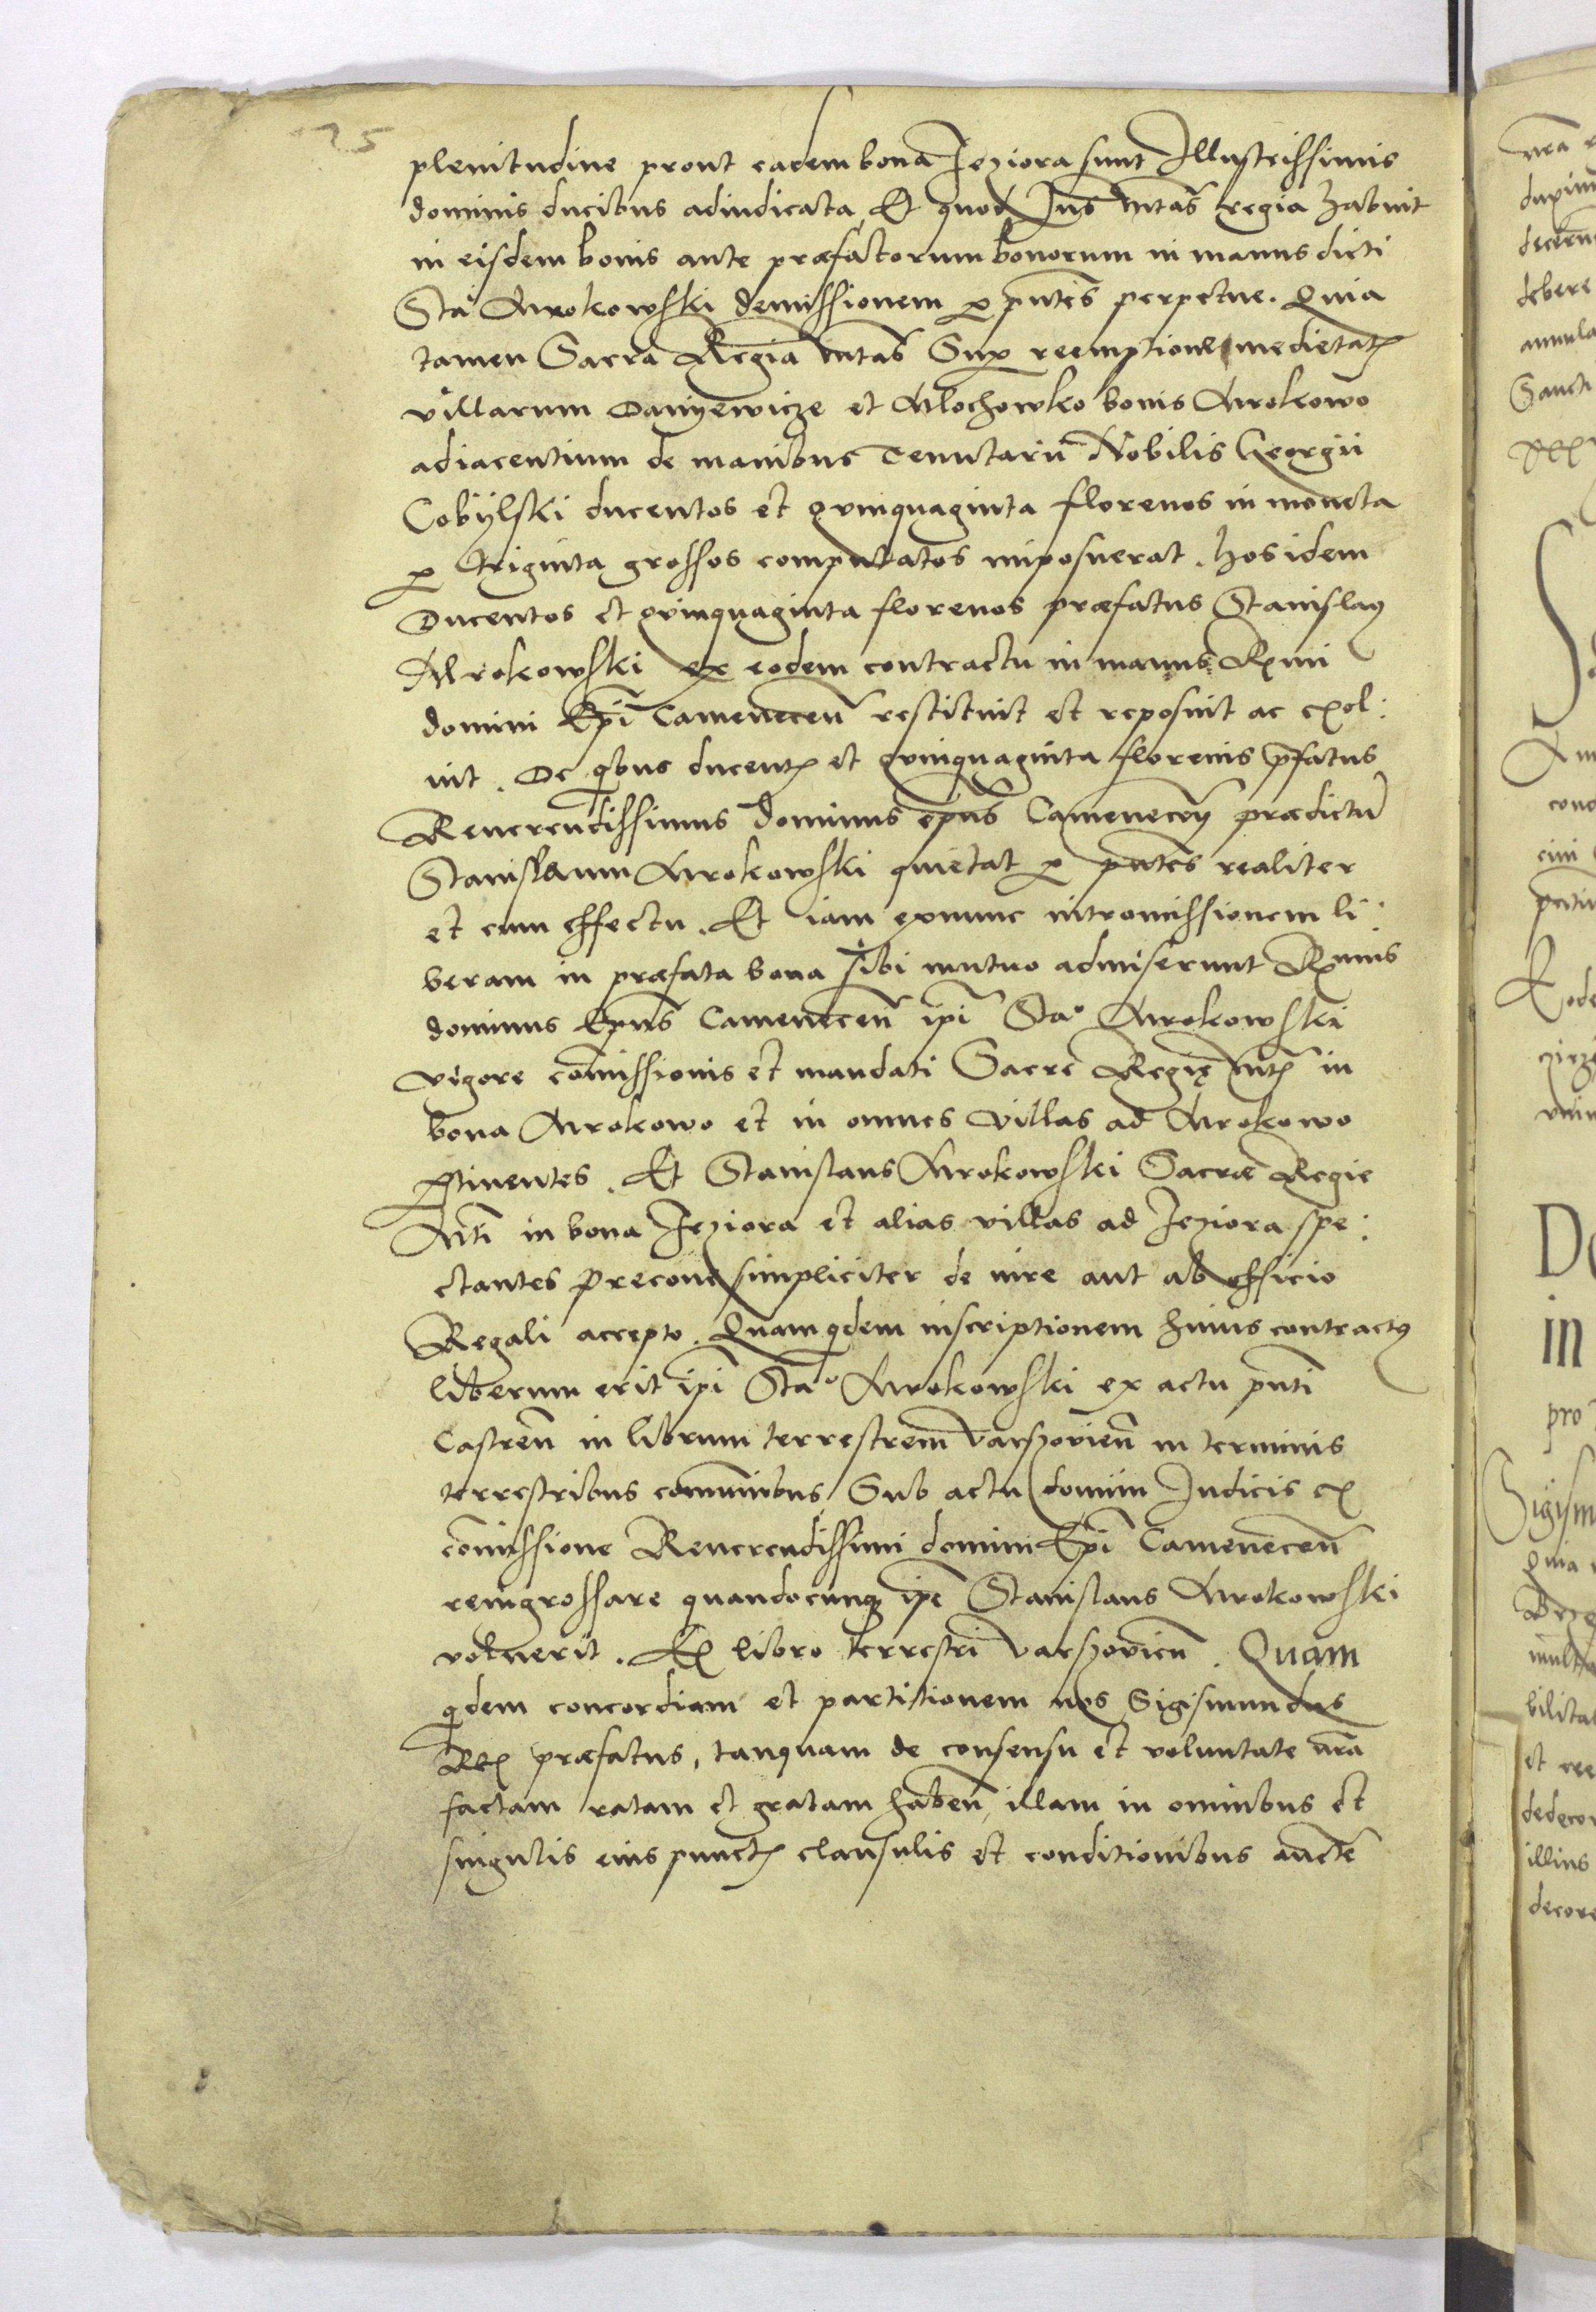 25
plenitudine prout eadem bona Jeziora sunt Illustrissimis
dominis ducibus adiudicata, Et quod Jus mtas regia habuit
in eisdem bonis ante præfactorum bonorum in manus dicti
Sta Mrokowski demissionem p pntes perpetue. Quia
tamen Sacra Regia mtas Sup reemptione medietatꝭ
villarum Danÿewicze et Mlochowko bonis Mrokowo
adiacentium de manibus Tenutariu Nobilis Georgii
Cobÿlski ducentos et quinquaginta florenos in moneta
p triginta grossos computatos imposuerat. hos idem
Ducentos et quinquaginta florenos præfatus Stanislaꝯ
Mrokowski ex eodem contractu in manus Rmi
domini Epi Camenecen̄ restituit et reposuit ac exol:
uit. De qbus ducentꝭ et quinquaginta florenis pfatus
Reuerendissimus dominus epus Cameneceñ prædictu
Stanislaum Mrokowski quietat p pntes realiter
et cum effectu. Et iam exnunc intromissionem li:
beram in præfata bona sibi mutuo admiserunt Rmus
dominus Epus Camenecen̄ ipi Stao Mrokowski
vigore com̄issionis et mandati Sacre Regię mtꝭ in
bona Mrokowo et in omnes villas ad Mrokowo
ꝑtinentes. Et Stanislaus Mrokowski Sacræ Regie
Mti in bona Jeziora et alias villas ad Jeziora spe:
ctantes Precone simpliciter de iure aut ab officio
Regali accepto. Quam qdem inscriptionem huius contractꝯ
liberum erit ipi Stao Mrokowski ex actu pnti
Castren̄ in librum terrestrem Varszouien̄ in terminis
terrestribus com̄unibus Sub actu domini Judicis ex
com̄issione Reuerendissimi domini Epi Camenecen̄
reingrossare quandocunqꝫ ipe Stanislaus Mrokowski
voluerit. Ex libro terrestri Varszouien̄. Quam
qdem concordiam et partitionem nos Sigismundus
Rex præfatus, tanquam de consensu et voluntate nra
factam ratam et gratam haben̄, illam in omnibus et
singulis eius punctꝭ clausulis et conditionibus aucte